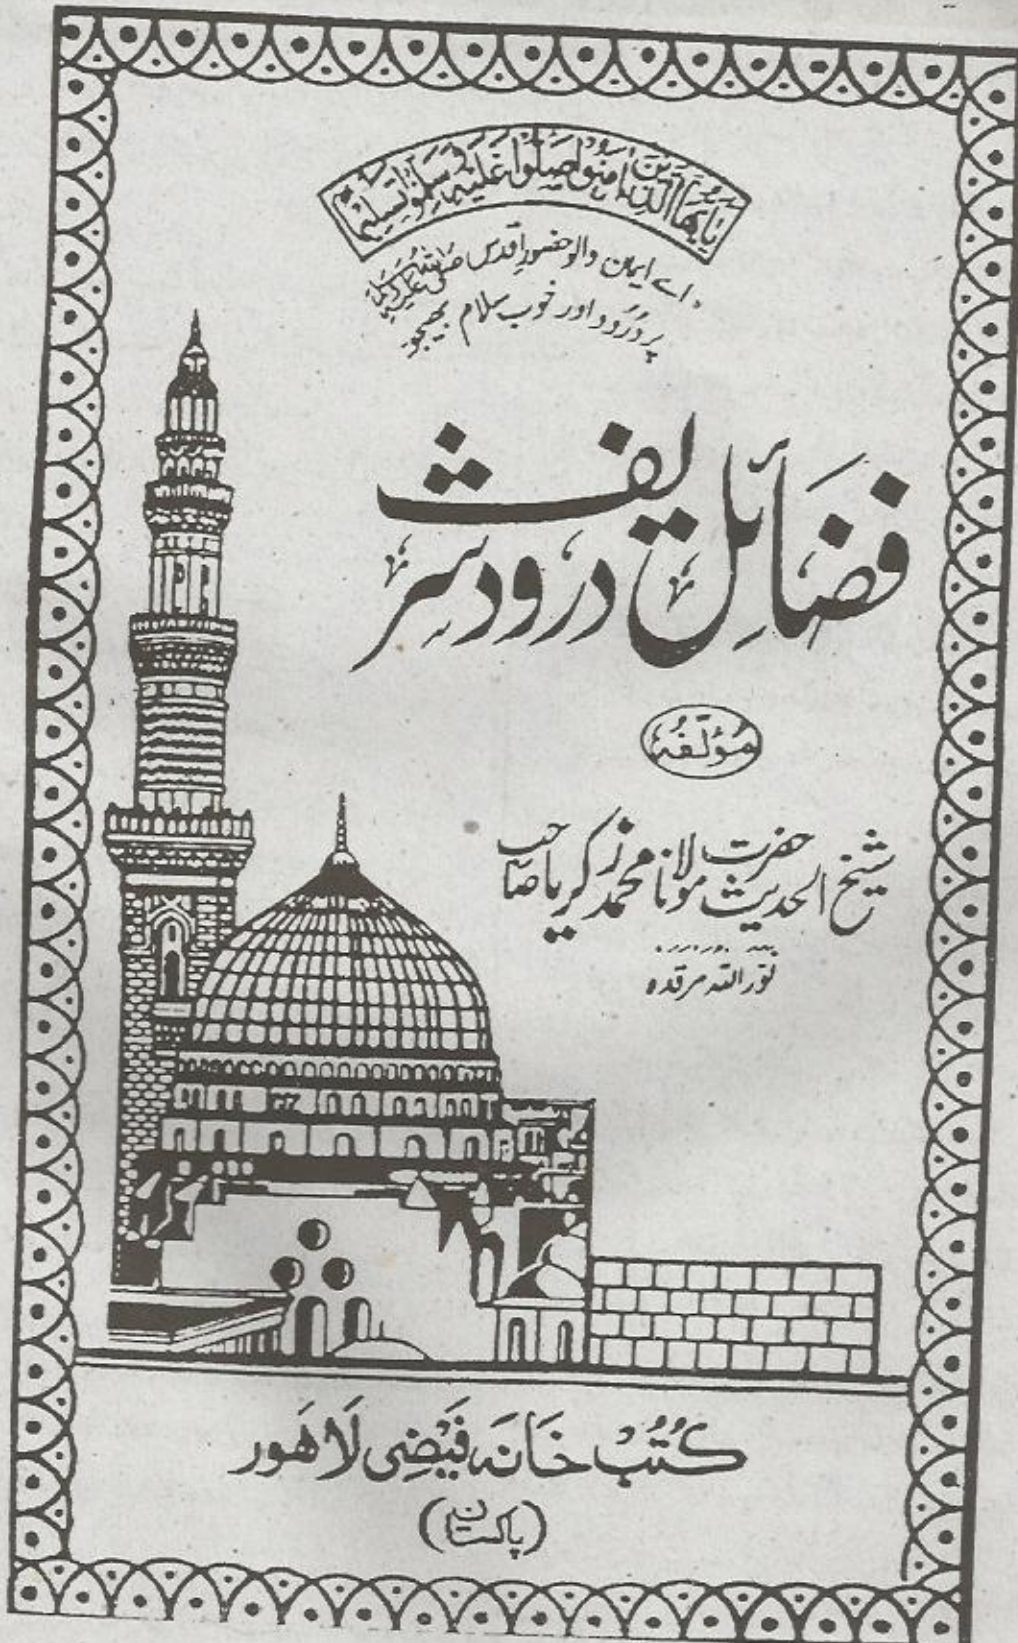 يَا أَيُّهَا الَّذِينَ آمَنُوا صَلُّوا عَلَيْهِ وَسَلِّمُوا تَسْلِيمًا
اے ایمان والو حضورِ اقدس صلی اللہ علیہ وسلم
پر دُرُود اور خوب سلام بھیجو
فضائل درود شریف
مؤلفہ
شیخ الحدیث حضرت مولانا محمد زکریا صاحب
نور اللہ مرقدہ
کُتُب خَانَہ فَیْضِی لَاهَور
(پاکستان)